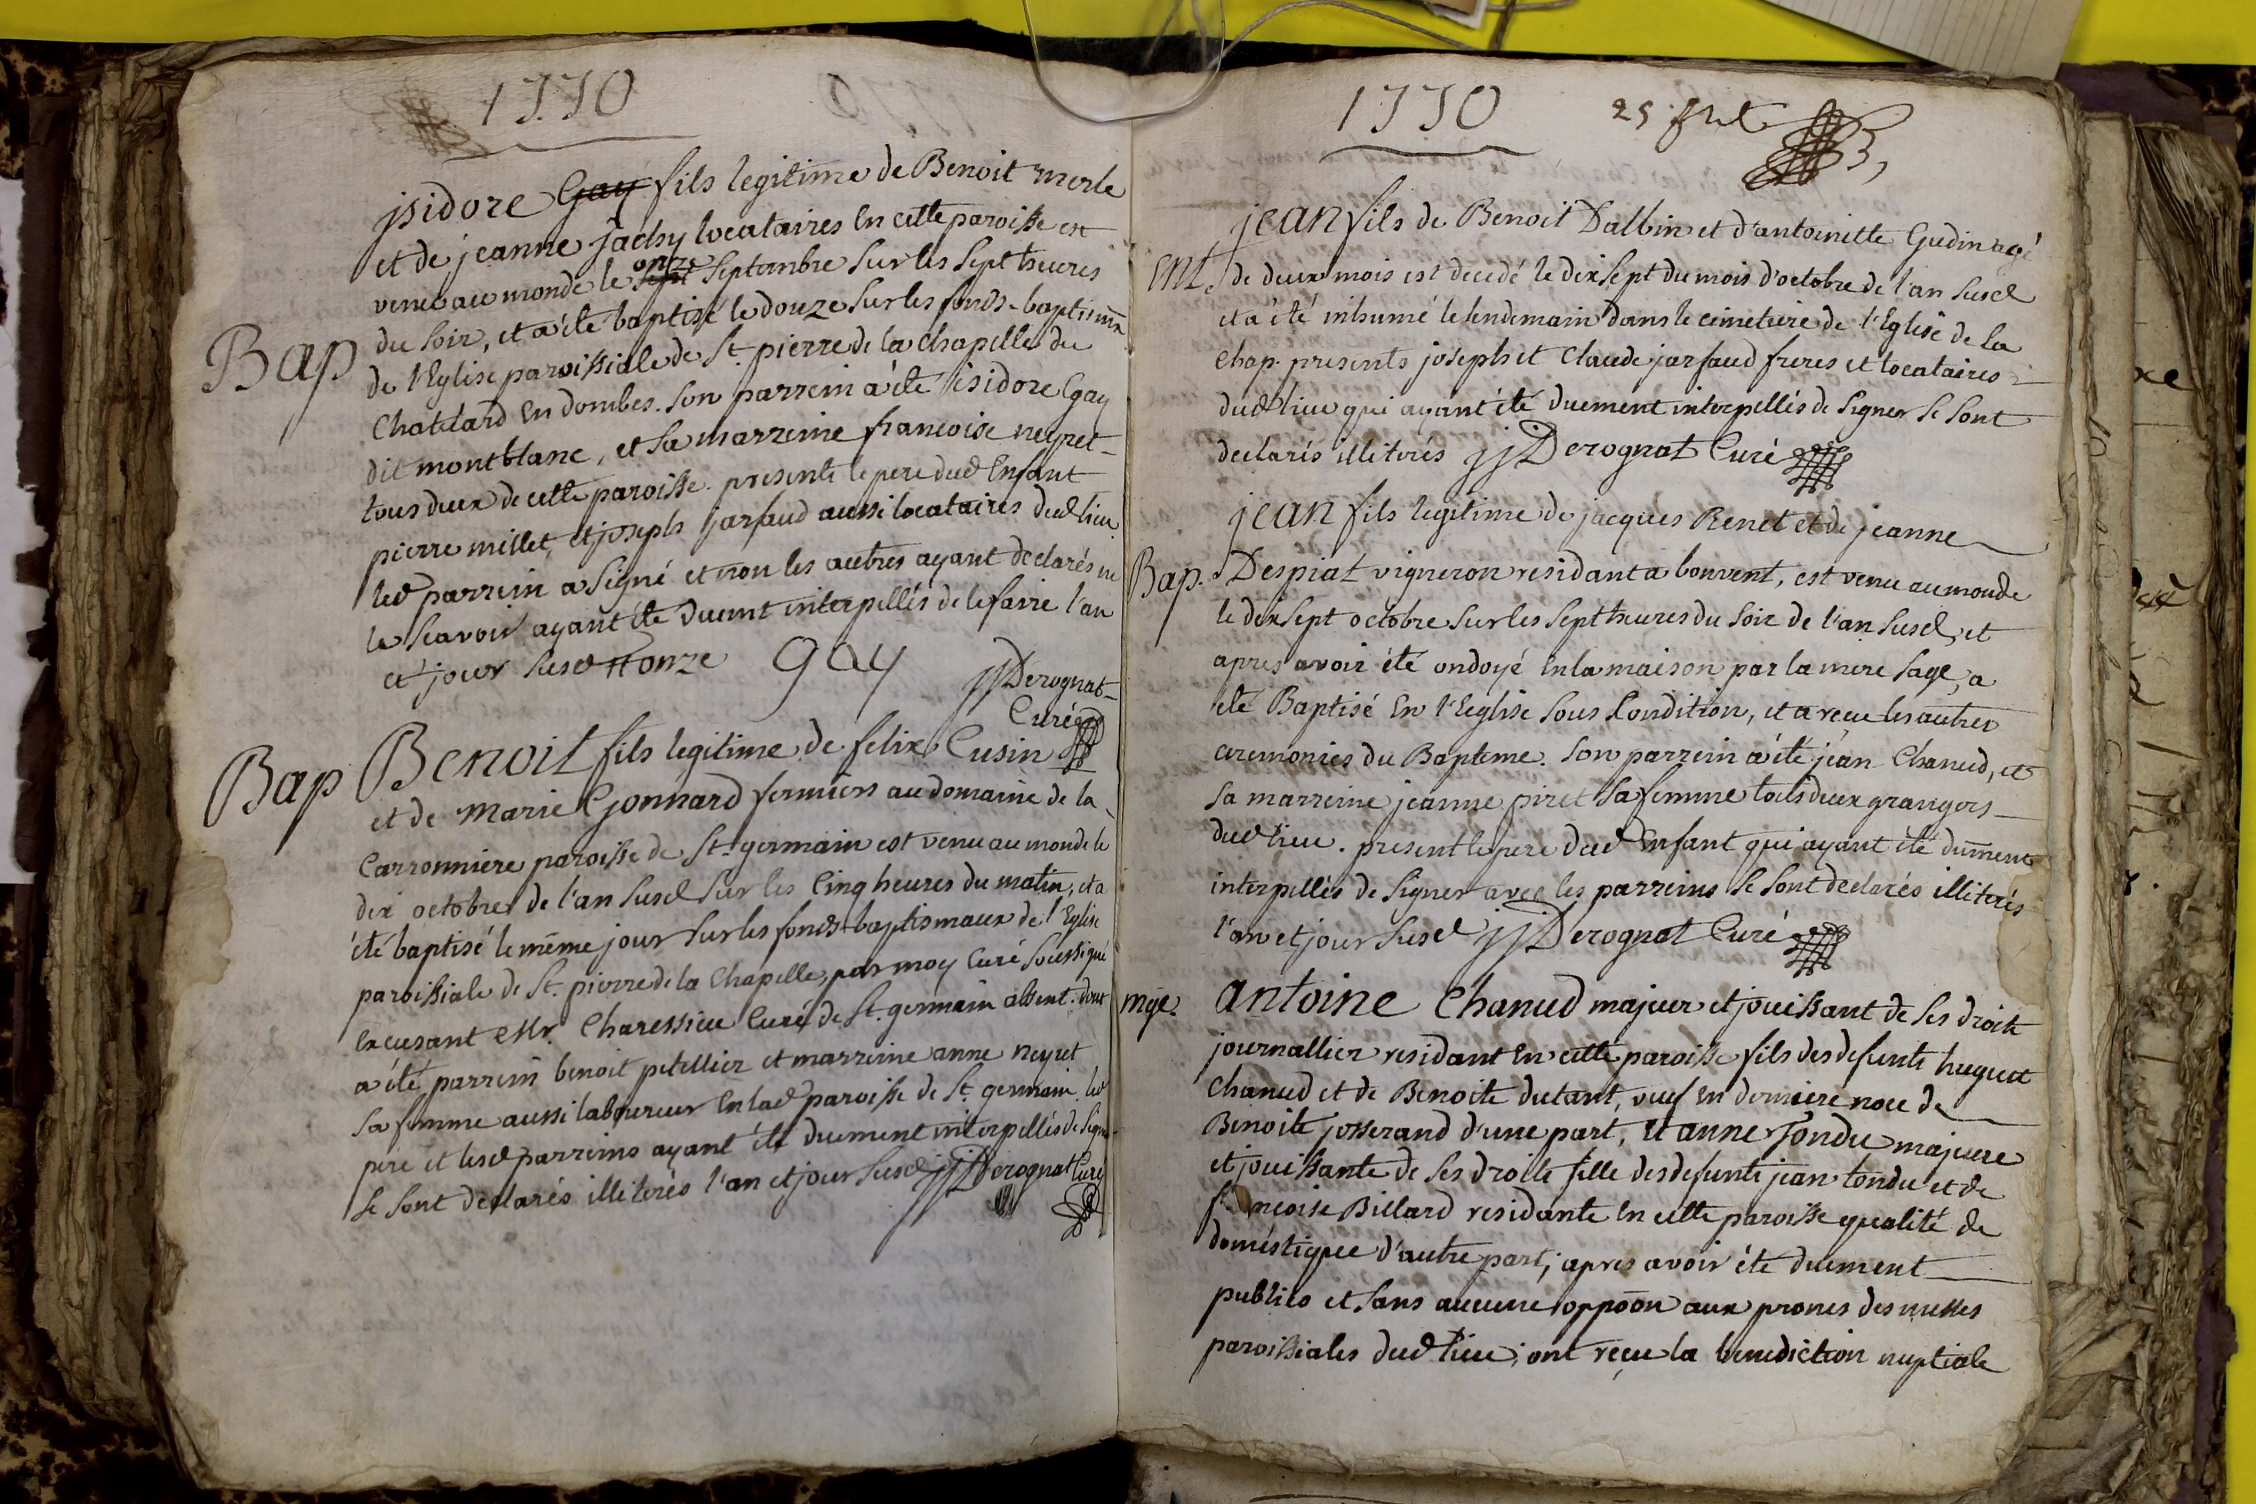 1770
jsidore Gay fils legitime de Benoit merle
et de jeanne jachy locataires En cette paroisse est
venu au monde le sept onze Septembre Sur les Sept heures
Bap
du Soir, et a été baptisé le douze Sur les fonds-baptismx
de l'Eglise paroissiale de St. pierre de la Chapelle du
Chatelard En dombes. Son parrein a été isidore Gay
dit montblanc, et Sa marreine francoise neyret
tous deux de cette paroisse. presents le pere dud Enfant
pierre millet, et joseph jarfaud aussi locataires dud lieu
led parrein a Signé et non les autres ayant declarés ne
le Scavoir ayant été duemt interpellés de le faire l'an
et jour Susd onze Gay jjDerognat
Curé
Bap
Benoit fils legitime de felix Cusin
et de Marie Gonnard fermiers au domaine de la
Carronniere paroisse de St. germain est venu au monde le
dix octobre de l'an Susd Sur les Cinq heures du matin, et a
été baptisé le même jour Sur les fonds-baptismaux de l'Eglise
paroissiale de St. pierre de la Chapelle, par moy Curé Soussigné
Excusant Mr. Charessieu Curé de St. germain absent. dont
a été parrein benoit petellier et marreine anne neyret
Sa femme aussi laboureur En lad paroisse de St. germain led
pere et lesd parreins ayant été duement interpellés de Signer
Se Sont declarés illiterés l'an et jour Susd jjDerognat Curé
1770
25
jean fils de Benoit Dalbin et d'antoinette Gudin agé
Ent.
de deux mois est decedé le dix Sept du mois d'octobre de l'an Susd
et a été inhumé le lendemain dans le cimetiere de l'Eglise de la
Chap. presents joseph et Claude jarfaud freres et locataires
dud lieu qui ayant été duement interpellés de Signer Se Sont
declarés illiterés jjDerognat Curé
jean fils legitime de jacques Renet et de jeanne
Bap.
Despiat vigneron residant a bouvent, est venu au monde
le dix Sept octobre Sur les Sept heures du Soir de l'an Susd, et
apres avoir été ondoyé En la maison par la mere Sage, a
été Baptisé En l'Eglise Sous Condition, et a reçu les autres
ceremonies du Bapteme. Son parrein a été jean Chanud, et
Sa marreine jeanne piret Sa femme tous deux grangers
dud lieu. present le pere dud Enfant qui ayant été dument
interpellés de Signer avec les parreins Se Sont declarés illiterés
l'an et jour Susd jjDerognat Curé
mge.
antoine Chanud majeur et jouissant de Ses droits
journallier residant En cette paroisse fils des defunts huguet
Chanud et de Benoite dutant, veuf En derniere noce de
Benoite josserand d'une part, Et anne Tondu majeure
et jouissante de Ses droits fille des defunts jean tondu et de
francoise Billard residante En cette paroisse qualité de
doméstique d'autre part; apres avoir été duement
publiés et Sans aucune oppōon aux prones des messes
paroissiales dud lieu; ont reçu la benediction nuptiale